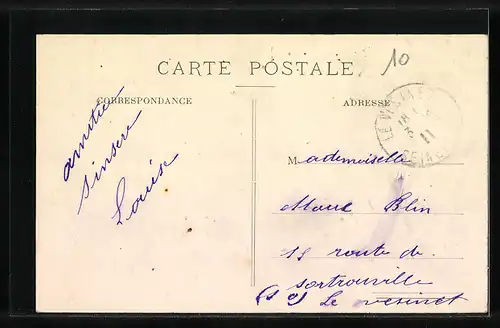 10
CARTE POSTALE
CORRESPONDANCE
amitié
sinsere
Louise
ADRESSE
LE
11
Mademoiselle
Blin
15 route de
sortrouville
(s o) Le vesinet